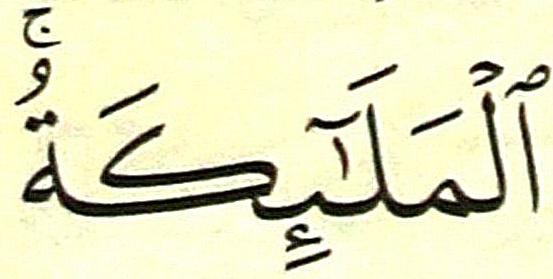 ٱلْمَلَٰٓئِكَةُ ۚ